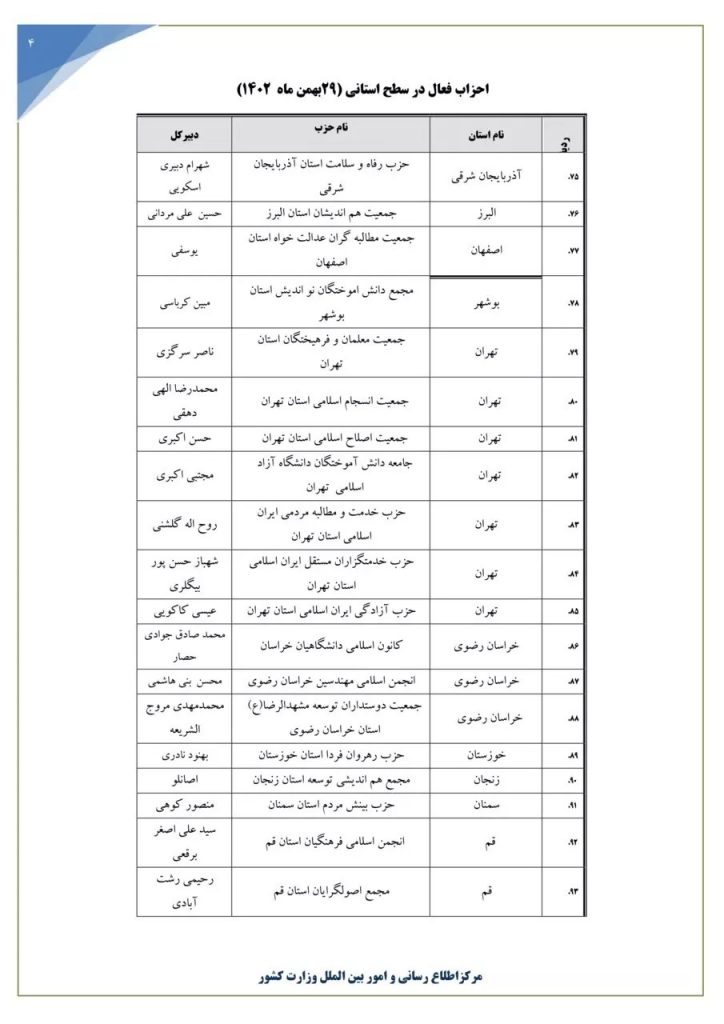 ۴
احزاب فعال در سطح استانی (۲۹بهمن ماه ۱۴۰۲)
ردیف نام استان نام حزب دبیرکل
۷۵. آذربایجان شرقی حزب رفاه و سلامت استان آذربایجان شرقی شهرام دبیری اسکویی
۷۶. البرز جمعیت هم اندیشان استان البرز حسین علی مردانی
۷۷. اصفهان جمعیت مطالبه گران عدالت خواه استان اصفهان یوسفی
۷۸. بوشهر مجمع دانش اموختگان نو اندیش استان بوشهر مبین کرباسی
۷۹. تهران جمعیت معلمان و فرهیختگان استان تهران ناصر سرگزی
۸۰. تهران جمعیت انسجام اسلامی استان تهران محمدرضا الهی دهقی
۸۱. تهران جمعیت اصلاح اسلامی استان تهران حسن اکبری
۸۲. تهران جامعه دانش آموختگان دانشگاه آزاد اسلامی تهران مجتبی اکبری
۸۳. تهران حزب خدمت و مطالبه مردمی ایران اسلامی استان تهران روح اله گلشنی
۸۴. تهران حزب خدمتگزاران مستقل ایران اسلامی استان تهران شهباز حسن پور بیگلری
۸۵. تهران حزب آزادگی ایران اسلامی استان تهران عیسی کاکویی
۸۶. خراسان رضوی کانون اسلامی دانشگاهیان خراسان محمد صادق جوادی حصار
۸۷. خراسان رضوی انجمن اسلامی مهندسین خراسان رضوی محسن بنی هاشمی
۸۸. خراسان رضوی جمعیت دوستداران توسعه مشهدالرضا(ع) استان خراسان رضوی محمدمهدی مروج الشریعه
۸۹. خوزستان حزب رهروان فردا استان خوزستان بهنود نادری
۹۰. زنجان مجمع هم اندیشی توسعه استان زنجان اصانلو
۹۱. سمنان حزب بینش مردم استان سمنان منصور کوهی
۹۲. قم انجمن اسلامی فرهنگیان استان قم سید علی اصغر برقعی
۹۳. قم مجمع اصولگرایان استان قم رحیمی رشت آبادی
مرکزاطلاع رسانی و امور بین الملل وزارت کشور